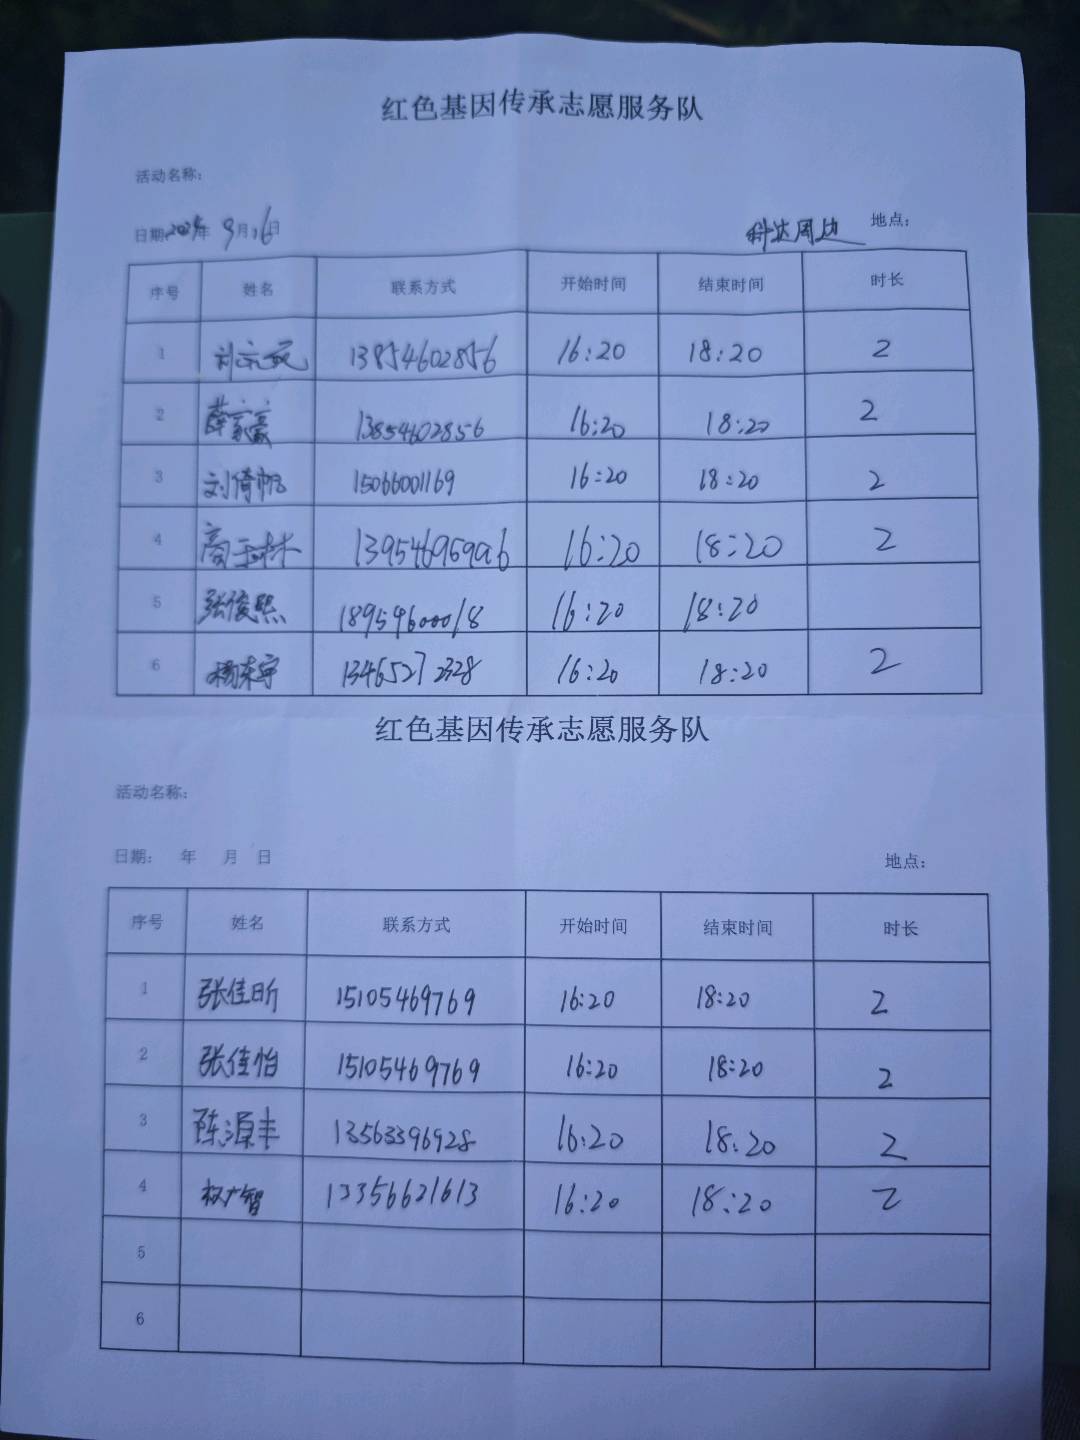 红色基因传承志愿服务队
活动名称:
日期: 年 9月16日 科达周边 地点:
序号 姓名 联系方式 开始时间 结束时间 时长
1 13854602856 16:20 18:20 2
2 薛家豪 13854602856 16:20 18:20 2
3 刘倚帆 15066001169 16:20 18:20 2
4 商玉林 16:20 18:20 2
5 张俊熙 18954600018 16:20 18:20
6 杨东宇 13465272328 16:20 18:20 2
红色基因传承志愿服务队
活动名称:
日期: 年 月 日 地点:
序号 姓名 联系方式 开始时间 结束时间 时长
1 张佳昕 15105469769 16:20 18:20 2
2 张佳怡 15105469769 16:20 18:20 2
3 陈源丰 13563396928 16:20 18:20 2
4 权广智 13356621613 16:20 18:20 2
5
6